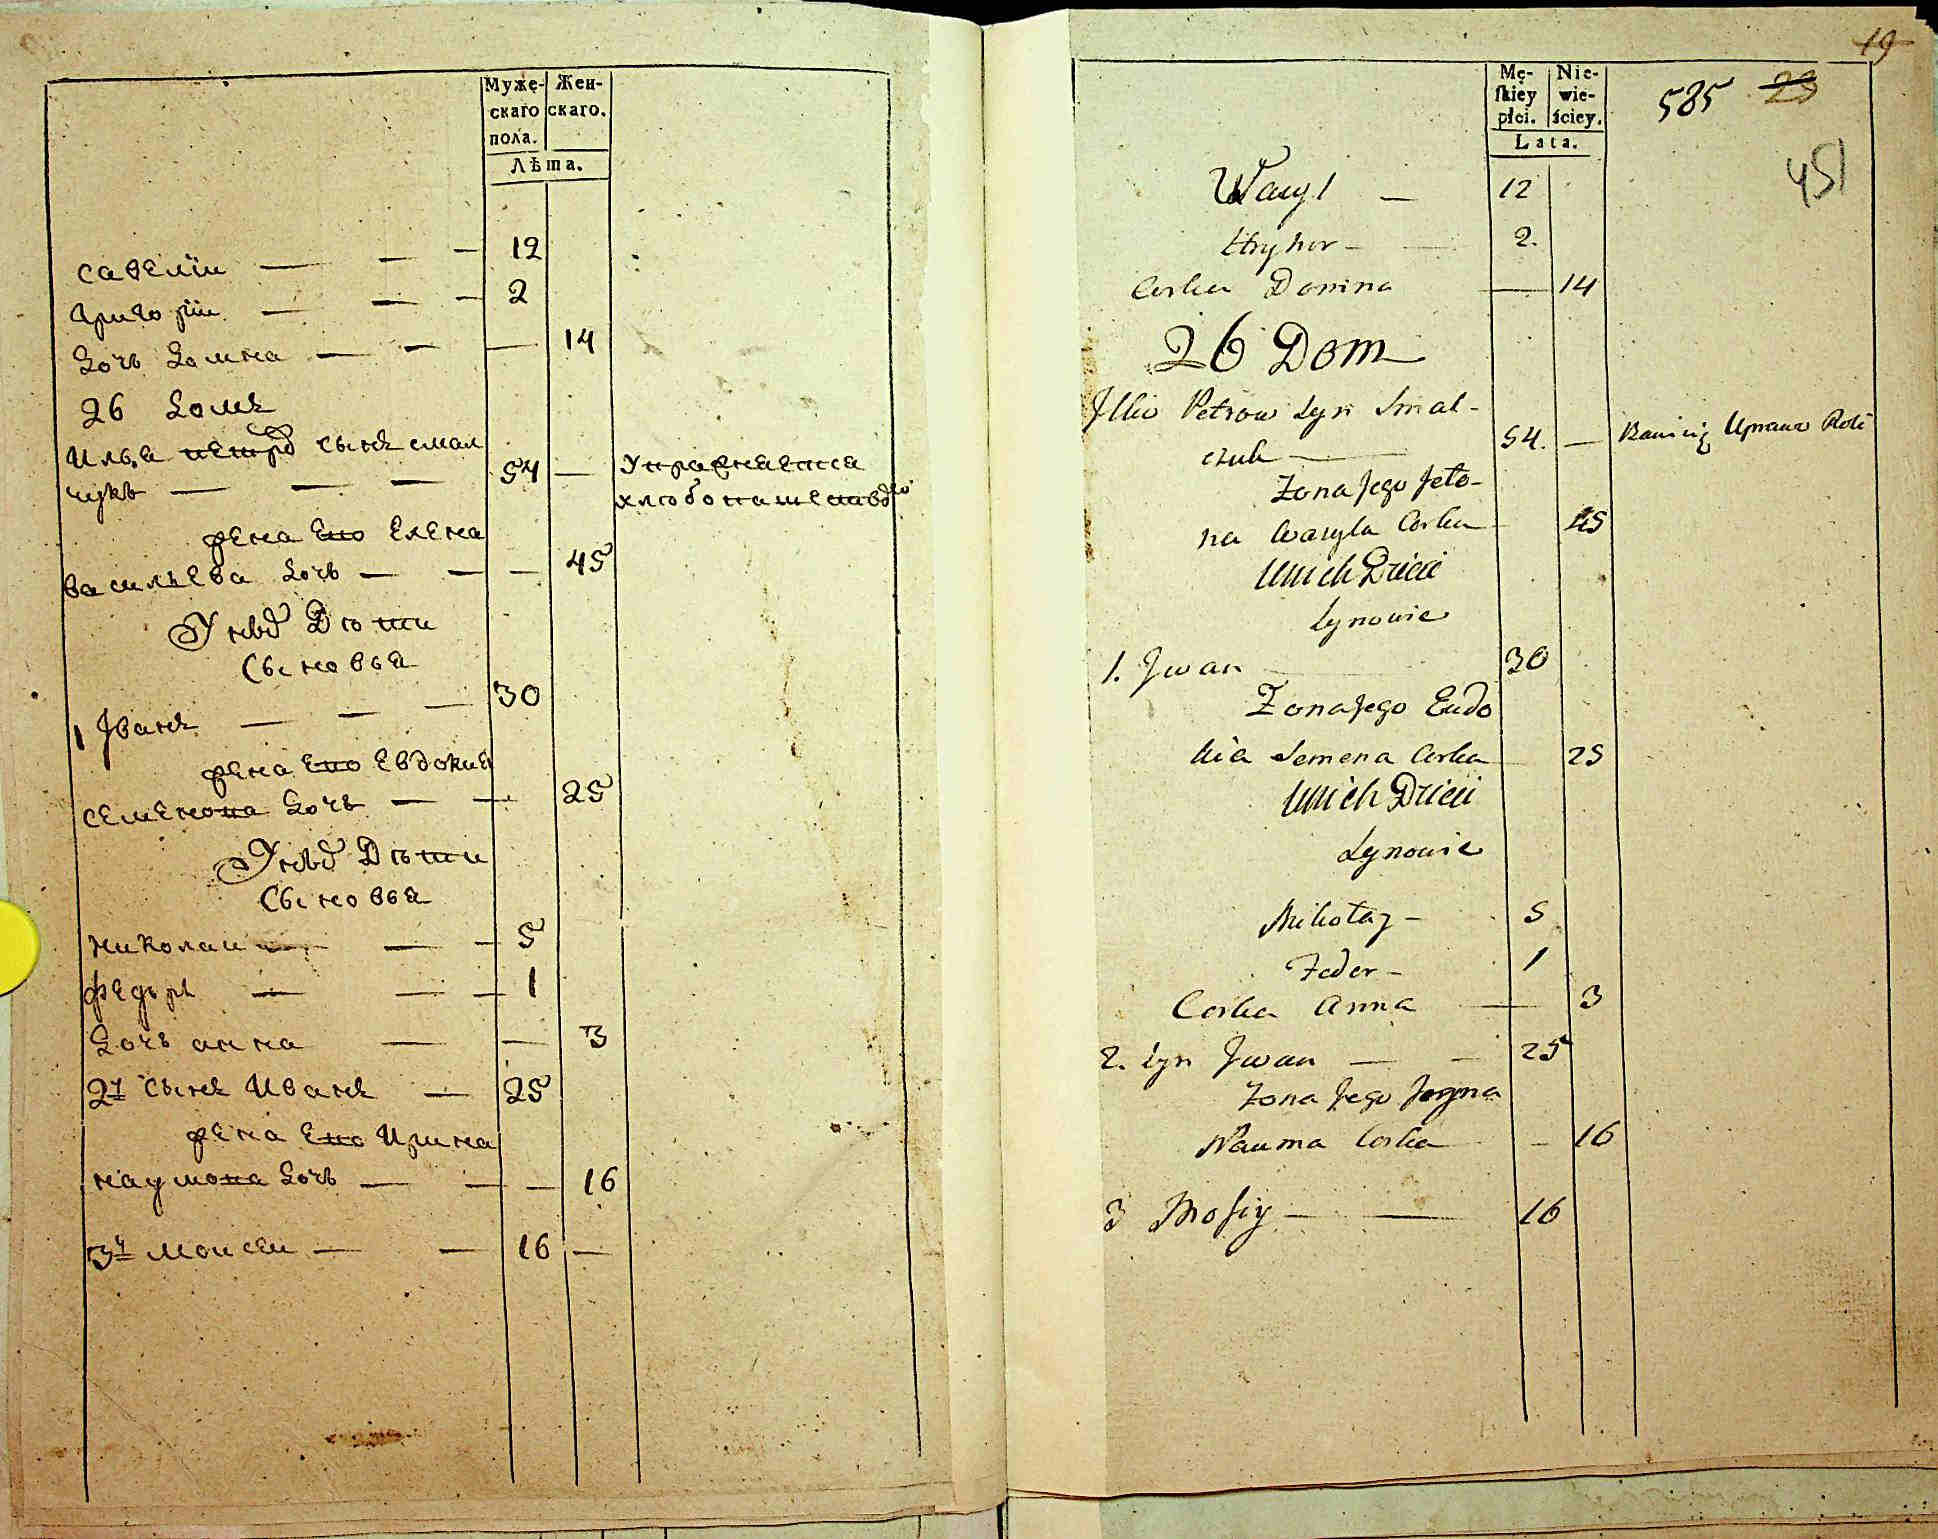 Муже-
скаго
пола.
Жен-
скаго.
Лѣта.
савелiи — — — 12
григорiи — — — 2
дочь домна — — — 14
26 домъ
илья петровъ сынъ смал
чукъ — — — 54 —
упражняется
хлебопашествомъ
жена его елена
васильева дочь — — — 45
У нихъ Дети
Сыновья
1 Иванъ — — — 30
жена его евдокия
семенова дочь — — 25
У нихъ Дети
Сыновья
николаи — — — 5
федоръ — — — 1
дочь анна — — 3
2й сынъ иванъ — 25
жена его ирина
наумова дочь — — — 16
3й моисеи — — 16 —
19
Mę-
skiey
płci.
Nie-
wie-
ściey.
Lata.
585 23
451
Wasyl — 12
Hryhor — 2.
Corka Domna — 14
26 Dom
Jlko Petrow Syn Smal-
czuk — 54. —
Bawi się Uprawą Roli
Zona Jego Jele-
na Wasyla Corka 45
U nich Dzieci
Synowie
1. Jwan 30
Zona Jego Eudo
kia Semena Corka 25
U nich Dzieci
Synowie
Mikołay — 5
Feder — 1
Corka Anna — 3
2. Syn Jwan — — 25
Zona Jego Jryna
Nauma Corka — 16
3 Mosiy — — 16